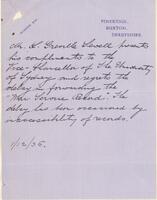 PINERIDGE,
BUXTON,
DERBYSHIRE.
Mr. L. Greville presents
his compliments to the
Vice-Chancellor of The University
of Sydney and regrets the
delay in forwarding the
"War Service Record". The
delay has been occasioned by
inaccessibility of records.
1/12/35.